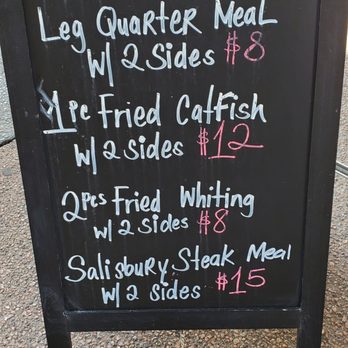 Leg Quarter Meal
W/ 2 Sides $8
1pc Fried Catfish
W/ 2 sides $12
2pcs Fried Whiting
w/ 2 sides $8
Salisbury Steak Meal
W/ 2 sides $15